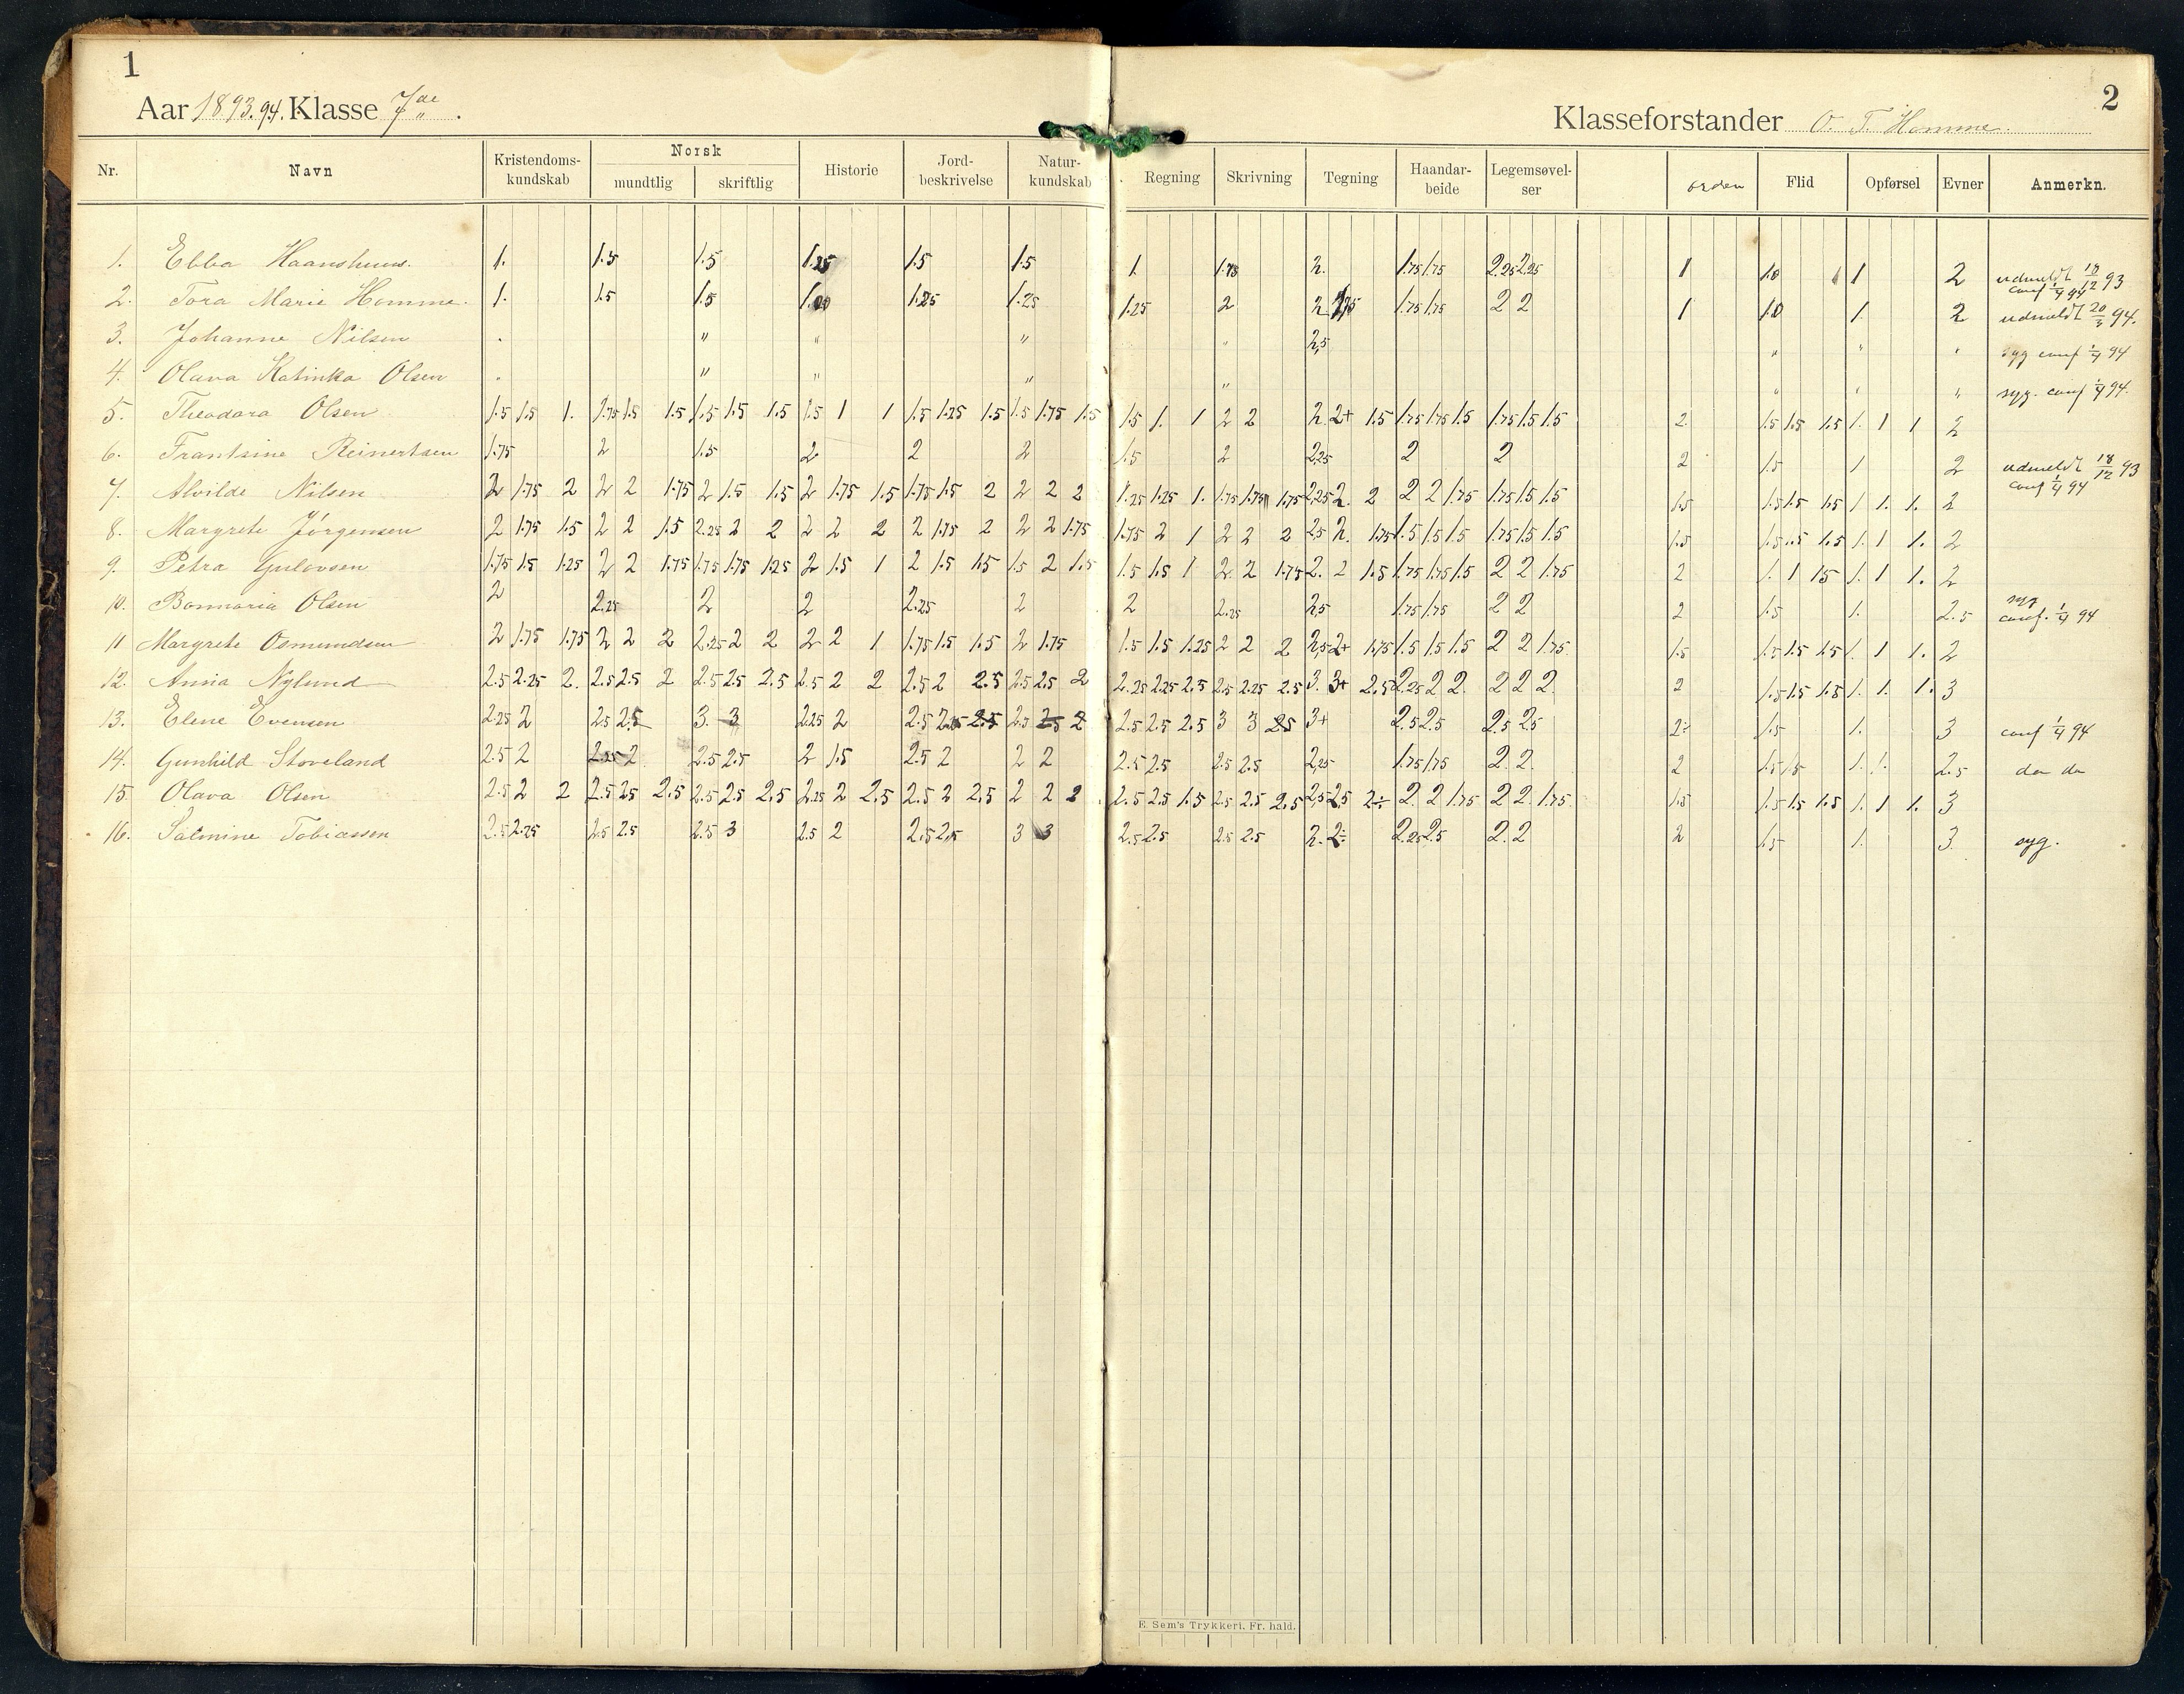 1
2
Aar 1893.94. Klasse 7de.
Klasseforstander O. T. Homme.
Nr. Navn Kristendoms-kundskab Norsk mundtlig skriftlig Historie Jord-beskrivelse Natur-kundskab Regning Skrivning Tegning Haandar-beide Legemsøvel-ser orden Flid Opførsel Evner Anmerkn.
1. Ebba Haanshuus. 1. 1.5 1.5 1.25 1.5 1.5 1. 1.75 2. 1.75 1.75 2.25 2.25 1 1.0 1 2 udmeldt 18/12 93 conf 1/4 94
2. Tora Marie Homme. 1. 1.5 1.5 1.25 1.25 1.25 2 2 1.75 1.75 2 2 1 1.0 1. 2 udmeldt 20/3 94.
3. Johanne Nilsen " " " " 2,5 " " " syg conf 1/4 94
4. Olava Katinka Olsen " " " " " " " syg. conf 1/4 94.
5. Theodora Olsen 1.5 1.5 1. 1.75 1.5 1.5 1.5 1.5 1.5 1.5 1 1 1.5 1.25 1.5 1.5 1.75 1.5 1.5 1. 1 2 2 2. 2+ 1.5 1.75 1.75 1.5 1.75 1.5 1.5 2. 1.5 1.5 1.5 1. 1 1 2
6. Frantsine Reinertsen 1.75 2 1.5 2 2 2 1.5 2 2,25 2 2 2 1.5 1 2 udmeldt 18/12 93 conf 1/4 94
7. Alvilde Nilsen 2 1.75 2 2 2 1.75 2 1.5 1.5 2 1.75 1.5 1.75 1.5 2 2 2 2 1.25 1.25 1. 1.75 1.75 1.75 2,25 2. 2 2 2 1.75 1.75 1.5 1.5 1.5 1.5 1.5 1.5 1 1. 1. 2
8. Margrete Jörgensen 2 1.75 1.5 2 2 1.5 2.25 2 2 2 2 2 2 1.75 2 2 2 1.75 1.75 2 1 2 2 2 2,5 2. 1.75 1.5 1.5 1.5 1.75 1.5 1.5 1.5 1.5 1.5 1.5 1. 1 1. 2
9. Petra Gulovsen 1.75 1.5 1.25 2 2 1.75 1.75 1.75 1.25 2 1.5 1 2 1.5 1.5 1.5 2 1.5 1.5 1.5 1 2 2 1.75 2. 2 1.5 1.75 1.75 1.5 2 2 1.75 2 1. 1 1.5 1. 1 1. 2
10. Bonmaria Olsen 2 2.25 2 2 2.25 2 2 2.25 2,5 1.75 1.75 2 2 2 1.5 1. 2.5 syg conf. 1/4 94
11 Margrete Osmundsen 2 1.75 1.75 2 2 2 2.25 2 2 2 2 1 1.75 1.5 1.5 2 1.75 1.5 1.5 1.25 2 2 2 2,5 2+ 1,75 1.5 1.5 1.5 2 2 1.75 1.5 1.5 1.5 1.5 1. 1 1. 2
12. Anna Nylund 2.5 2.25 2. 2.5 2.5 2 2.5 2.5 2.5 2.5 2 2 2.5 2 2.5 2.5 2.5 2 2.25 2.25 2.5 2.5 2.25 2.5 3. 3+ 2.5 2.25 2 2. 2 2 2. 2 1.5 1.5 1.5 1. 1. 1. 3
13. Elene Evensen 2.25 2 2.5 2.5 3. 3 2.25 2 2.5 2.5 2.5 2.5 2.5 3 3 3+ 2.5 2.5 2.5 2.5 2÷ 1.5 1. 3 conf 1/4 94
14. Gunhild Stoveland 2.5 2 2.25 2 2.5 2.5 2 1.5 2.5 2 2 2 2.5 2.5 2.5 2.5 2,25 1.75 1.75 2. 2. 2 1.5 1.5 1. 1. 2.5 do do
15. Olava Olsen 2.5 2 2 2.5 2.5 2.5 2.5 2.5 2.5 2.25 2 2.5 2.5 2 2.5 2 2 2 2.5 2.5 1.5 2.5 2.5 2.5 2,5 2.5 2÷ 2. 2 1.75 2 2. 1.75 1.5 1.5 1.5 1.5 1. 1 1. 3
16. Salmine Tobiassen 2.5 2.25 2.5 2.5 2.5 3 2.5 2 2.5 2.5 3 3 2.5 2.5 2.5 2.5 2. 2÷ 2.25 2.5 2. 2 2 1.5 1. 3. syg.
E. Sem's Trykkeri. Fr. hald.